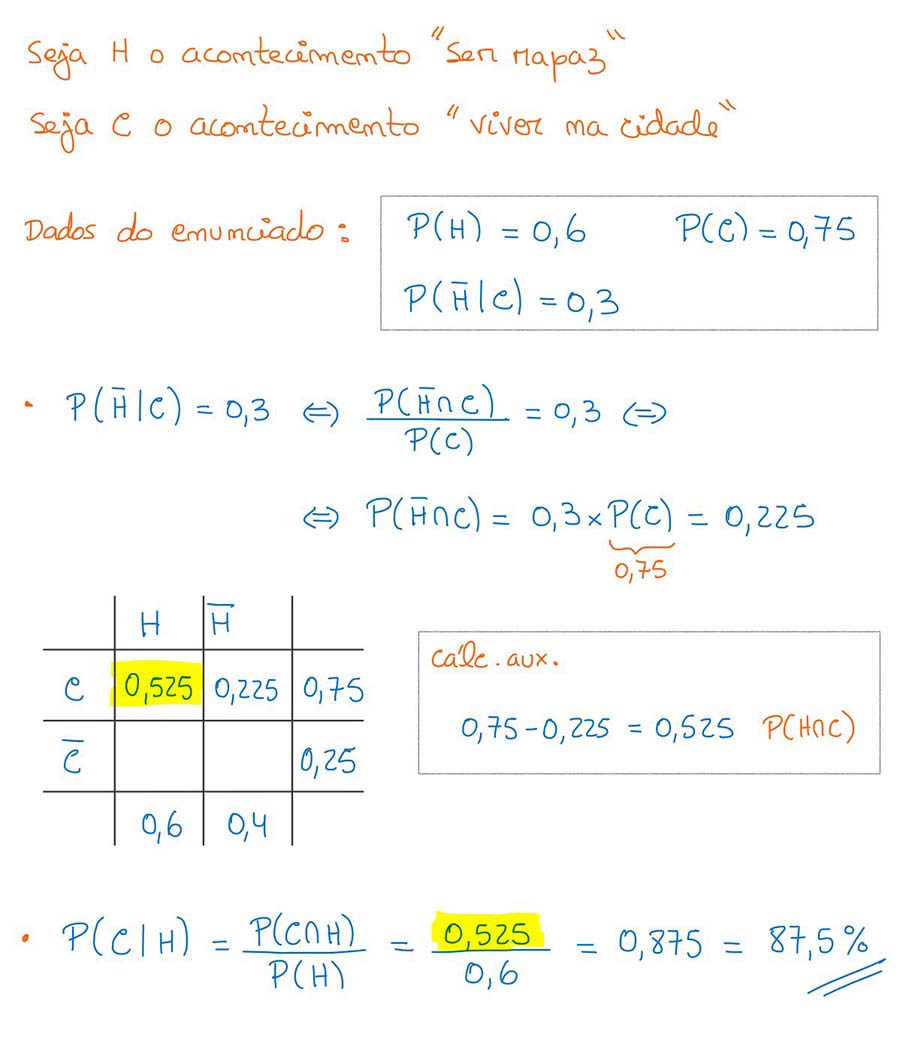 Seja H o acontecimento "Ser rapaz"
Seja C o acontecimento "viver na cidade"
Dados do enunciado: P(H) = 0,6 P(C) = 0,75
P(H̅|C) = 0,3
• P(H̅|C) = 0,3 ⇔ P(H̅∩C)/P(C) = 0,3 ⇔
⇔ P(H̅∩C) = 0,3 × P(C) = 0,225
0,75
H H̅
C 0,525 0,225 0,75
C̅ 0,25
0,6 0,4
Cálc. aux.
0,75 - 0,225 = 0,525 P(H∩C)
• P(C|H) = P(C∩H)/P(H) = 0,525/0,6 = 0,875 = 87,5%